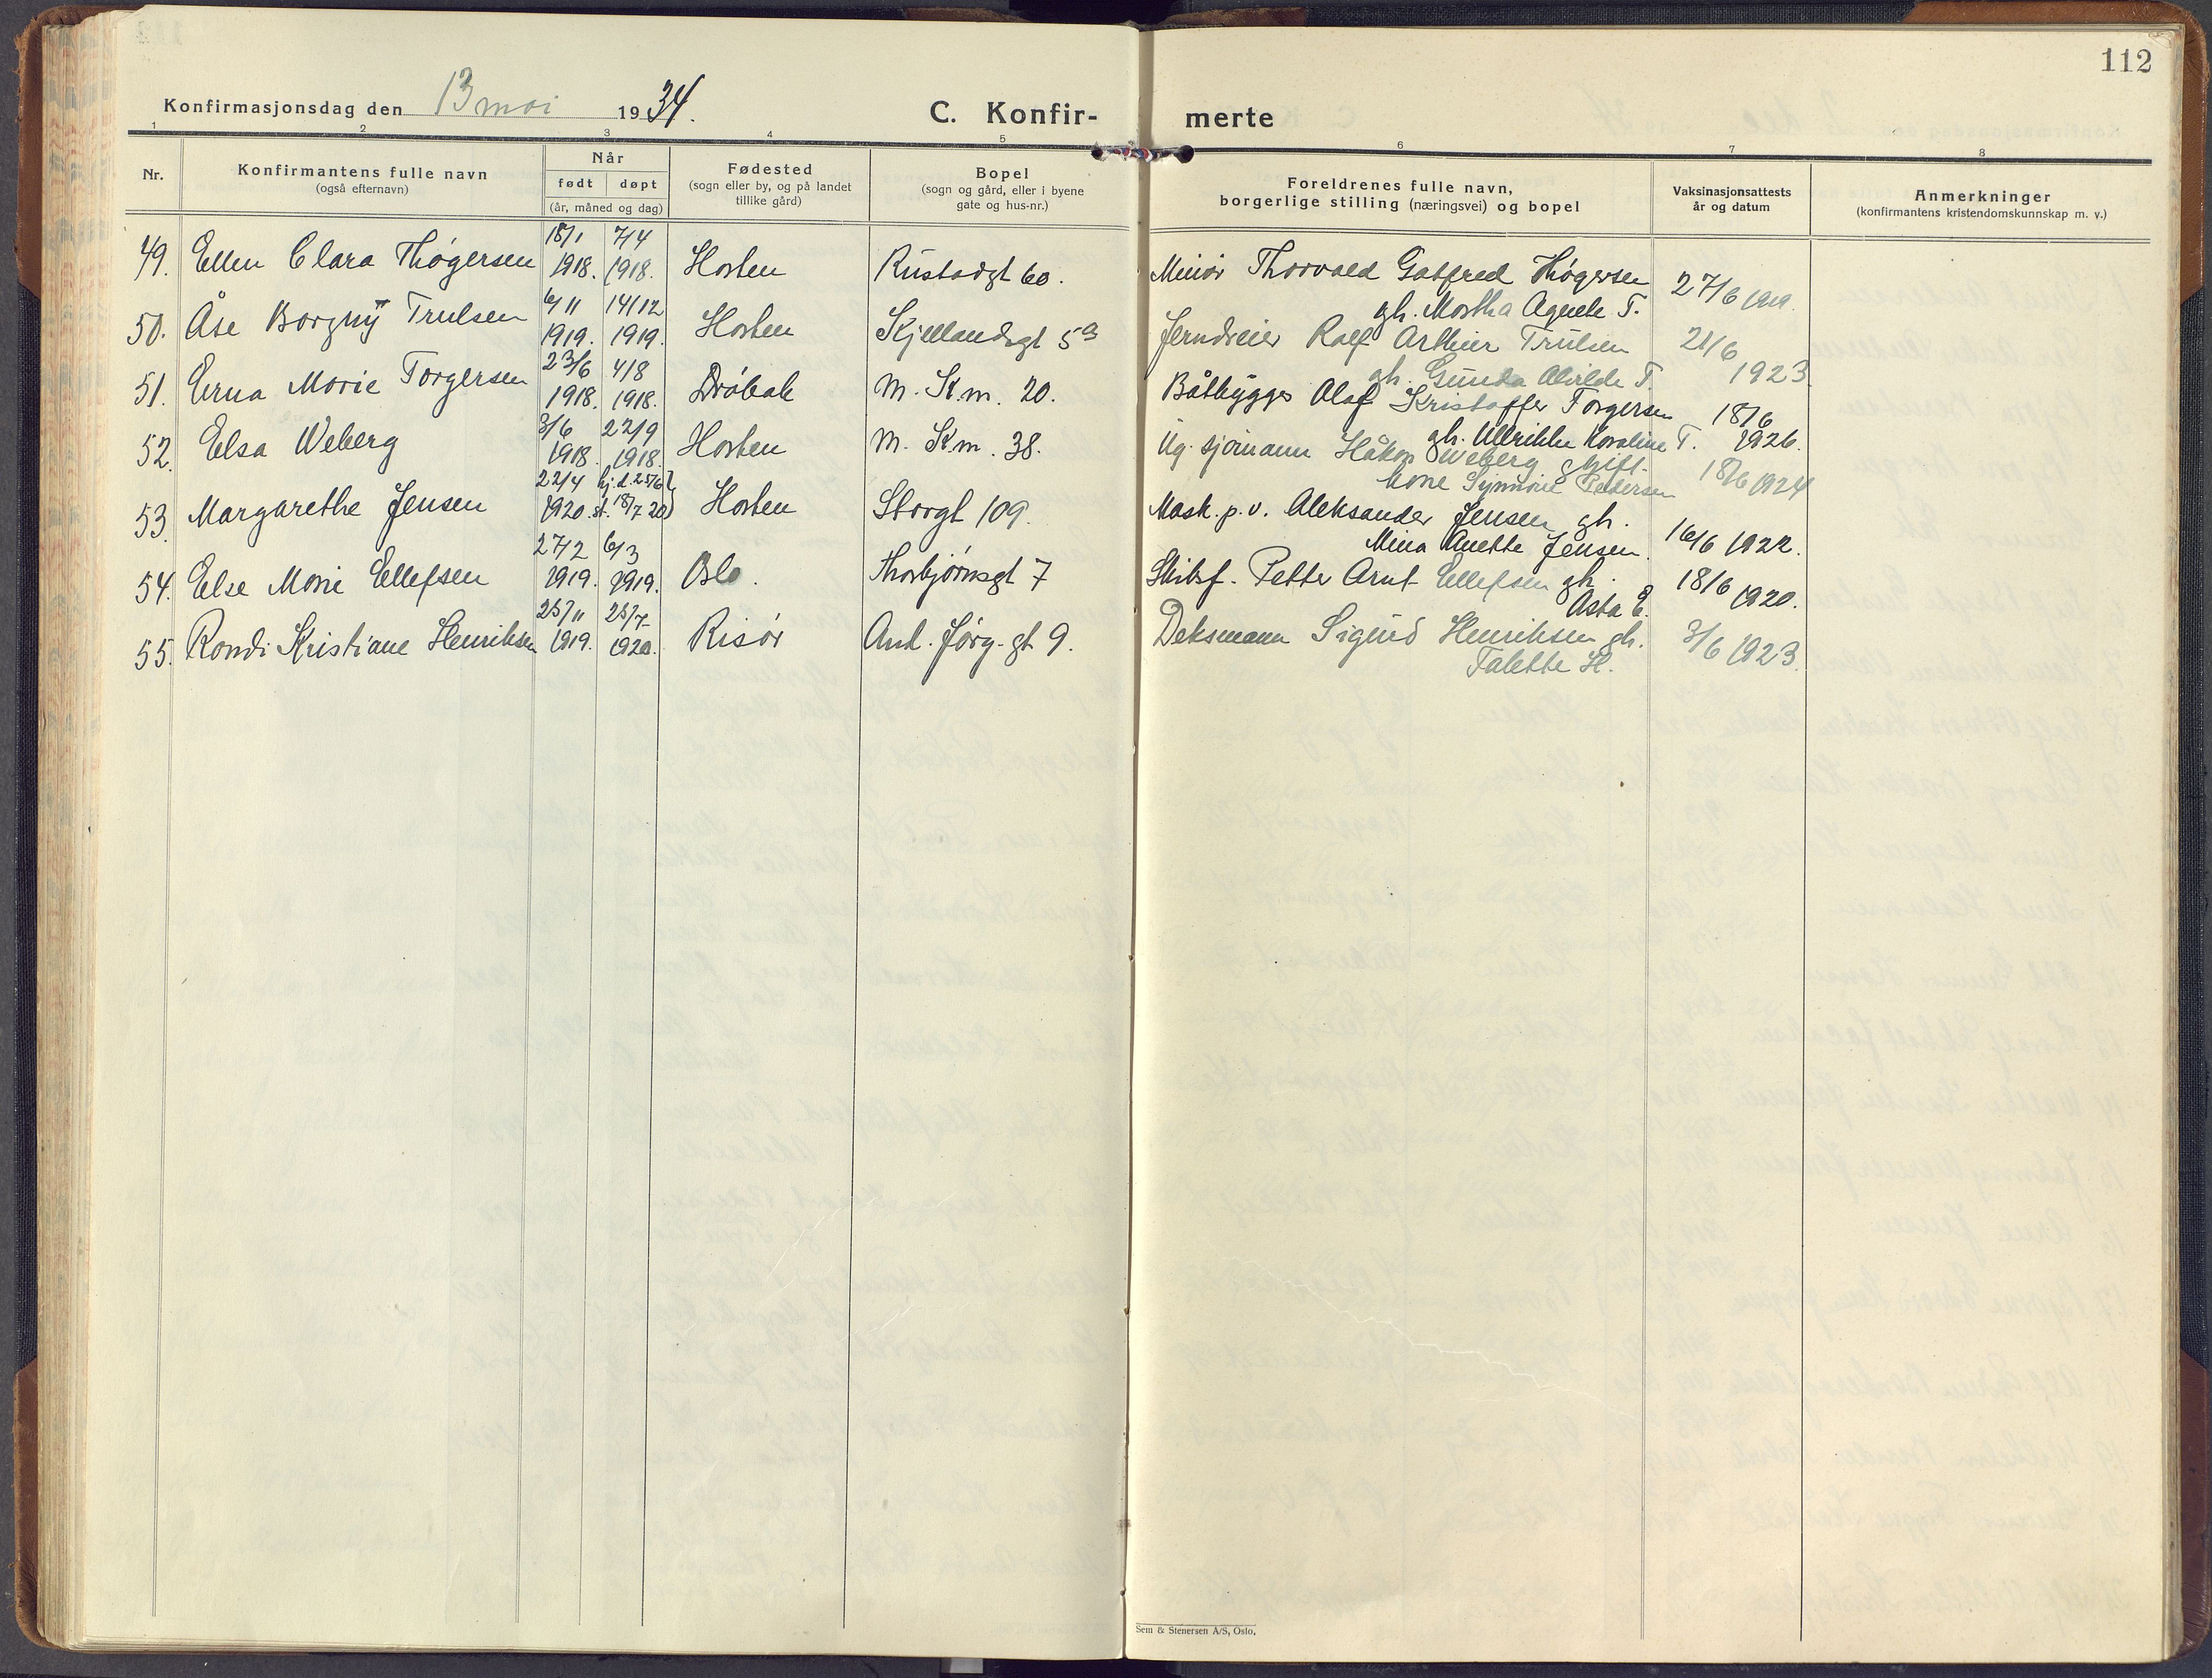 112
Konfirmasjonsdag den 13 mai 1934.
C. Konfir- merte
1 2 3 4 5 6 7 8
Nr.
Konfirmantens fulle navn
(også efternavn)
Når
født døpt
(år, måned og dag)
Fødested
(sogn eller by, og på landet
tillike gård)
Bopel
(sogn og gård, eller i byene
gate og hus-nr.)
Foreldrenes fulle navn,
borgerlige stilling (næringsvei) og bopel
Vaksinasjonsattests
år og datum
Anmerkninger
(konfirmantens kristendomskunnskap m. v.)
49. Ellen Clara Thøgersen 18/1 1918. 7/4 1918. Horten Rustadgt 60. Minør Thorvald Gotfred Thøgersen 27/6 1919.
gh. Martha Agnete T.
50. Åse Borgny Trulsen 6/11 1919. 14/12 1919. Horten Kjellandsgt 5a Jerndreier Rolf Arthur Trulsen 21/6 1923
gh. Gunda Alvilde T.
51. Erna Marie Torgersen 23/6 1918. 4/8 1918. Drøbak M. K.m. 20. Båtbygger Olaf Kristoffer Torgersen 18/6 1926.
gh. Ullrikke Karoline T.
52. Elsa Weberg 3/6 1918. 22/9 1918. Horten M. Km. 38. Ug. sjømann Håkon Weberg. g gift- 18/6 1924
kone Synnøve Pedersen
53. Margarethe Jensen 22/4 1920. hj. d. 25/6 st. 18/7 20) Horten Storgt 109. Mask. p. v. Aleksander Jensen gh. 16/6 1922.
Mina Anette Jensen.
54. Else Marie Ellefsen 27/2 1919. 6/3 1919. Oslo. Thorbjørnsgt 7 Skibsf. Petter Arnt Ellefsen gh. 18/6 1920.
Asta E.
55. Randi Kristiane Henriksen 25/11 1919. 25/7 1920. Risør Ant. Jørg. gt 9. Deksmann Sigurd Henriksen gh. 3/6 1923.
Talette H.
Sem & Stenersen A/S, Oslo.